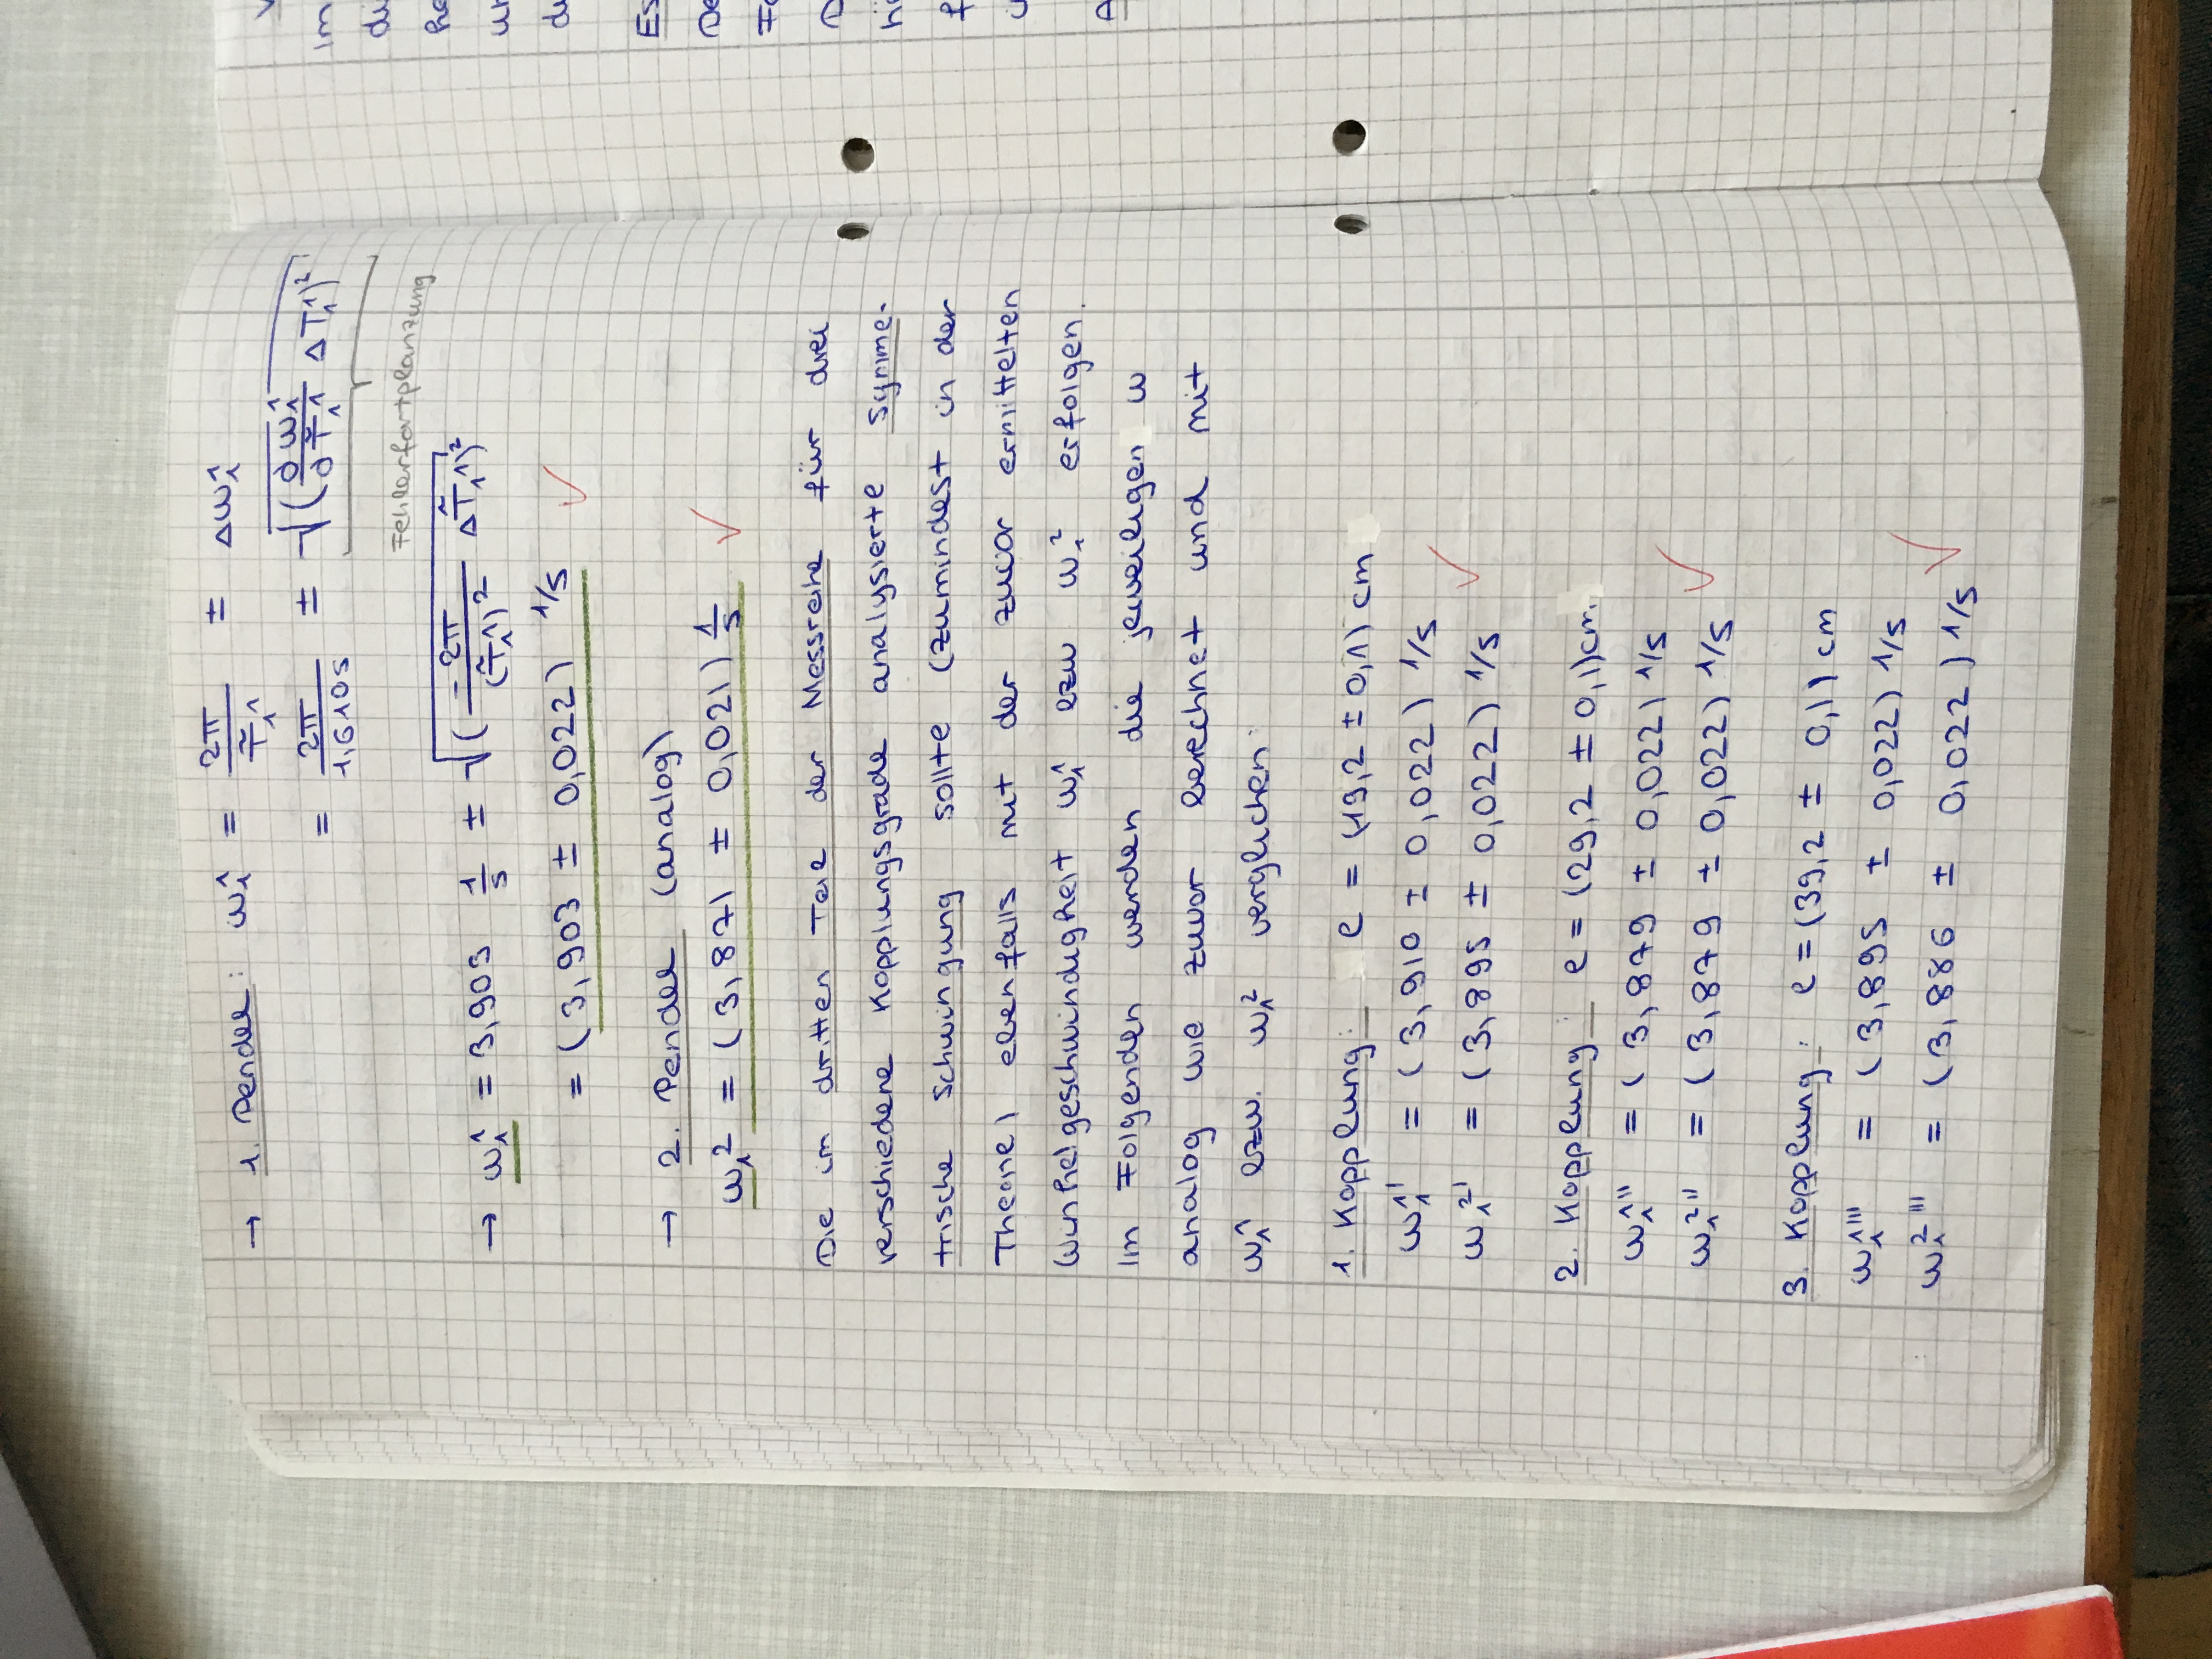 → 1. Pendel: ω₁¹ = 2π / T̃₁¹ ± Δω₁¹
= 2π / 1,610s ± √((∂ω₁¹ / ∂T̃₁¹ ΔT₁¹)²)
Fehlerfortplanzung
→ ω₁¹ = 3,903 1/s ± √((-2π / (T̃₁¹)² ΔT̃₁¹)²)
= (3,903 ± 0,022) 1/s ✓
→ 2. Pendel (analog)
ω₁² = (3,871 ± 0,021) 1/s ✓
Die im dritten Teil der Messreihe für drei
verschiedene Kopplungsgrade analysierte symme-
trische Schwingung sollte (zumindest in der
Theorie) ebenfalls mit der zuvor ermittelten
Winkelgeschwindigkeit ω₁¹ bzw ω₁² erfolgen.
Im Folgenden werden die jeweiligen ω
analog wie zuvor berechnet und mit
ω₁¹ bzw. ω₁² verglichen:
1. Kopplung: l = (19,2 ± 0,1) cm
ω₁¹' = (3,910 ± 0,022) 1/s
ω₁²' = (3,895 ± 0,022) 1/s ✓
2. Kopplung: l = (29,2 ± 0,1) cm
ω₁¹'' = (3,879 ± 0,022) 1/s
ω₁²'' = (3,879 ± 0,022) 1/s ✓
3. Kopplung: l = (39,2 ± 0,1) cm
ω₁¹''' = (3,895 ± 0,022) 1/s
ω₁²''' = (3,886 ± 0,022) 1/s ✓
Im
Es